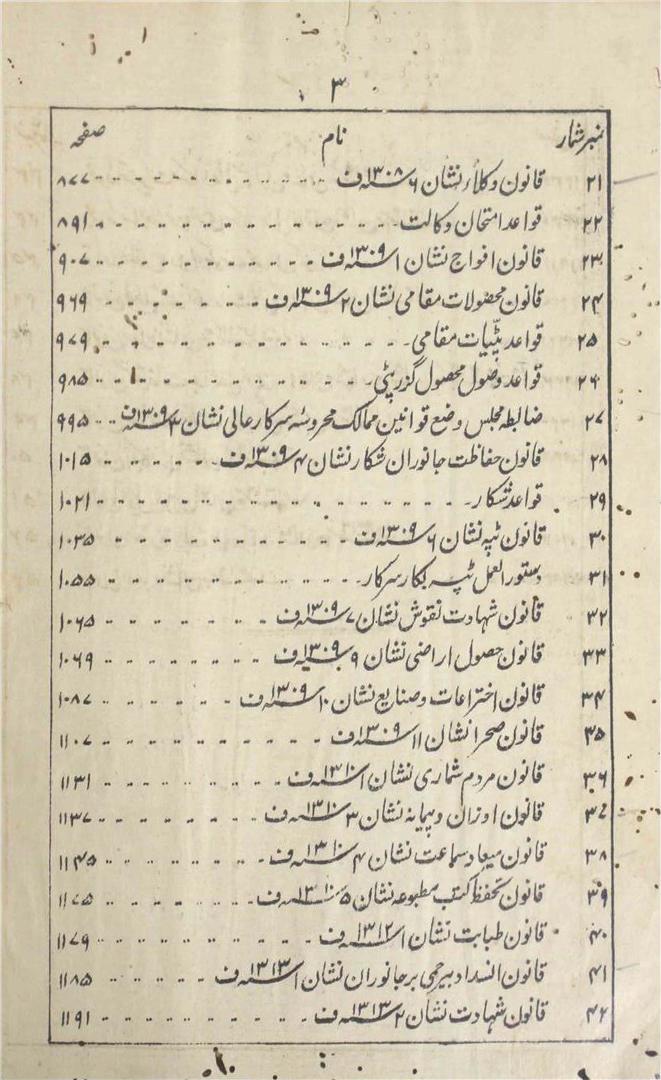 ۳
نمبر شمار نام صفحہ
۲۱ قانون وکلاء نشان ۶ سنہ ۱۳۰۸ ف ۸۷۷
۲۲ قواعد امتحان وکالت ۸۹۱
۲۳ قانون افواج نشان ۱ سنہ ۱۳۰۹ ف ۹۰۷
۲۴ قانون محصولات مقامی نشان ۲ سنہ ۱۳۰۹ ف ۹۶۹
۲۵ قواعد پٹیات مقامی ۹۷۹
۲۶ قواعد وصول محصول گزرپٹی ۹۸۵
۲۷ ضابطہ مجلس وضع قوانین ممالک محروسہ سرکار عالی نشان ۳ سنہ ۱۳۰۹ ف ۹۹۵
۲۸ قانون حفاظت جانوران شکار نشان ۴ سنہ ۱۳۰۹ ف ۱۰۱۵
۲۹ قواعد شکار ۱۰۲۱
۳۰ قانون ٹپہ نشان ۶ سنہ ۱۳۰۹ ف ۱۰۳۵
۳۱ دستور العمل ٹپہ بکار سرکار ۱۰۵۵
۳۲ قانون شہادت نقوش نشان ۷ سنہ ۱۳۰۹ ف ۱۰۶۵
۳۳ قانون حصول اراضی نشان ۹ سنہ ۱۳۰۹ ف ۱۰۶۹
۳۴ قانون اختراعات وصنایع نشان ۱۰ سنہ ۱۳۰۹ ف ۱۰۸۷
۳۵ قانون صحرا نشان ۱۱ سنہ ۱۳۰۹ ف ۱۱۰۷
۳۶ قانون مردم شماری نشان ۱ سنہ ۱۳۱۰ ف ۱۱۳۱
۳۷ قانون اوزان وپیمانہ نشان ۳ سنہ ۱۳۱۰ ف ۱۱۳۷
۳۸ قانون میعاد سماعت نشان ۴ سنہ ۱۳۱۰ ف ۱۱۴۵
۳۹ قانون تحفظ کتب مطبوعہ نشان ۵ سنہ ۱۳۱۰ ف ۱۱۷۵
۴۰ قانون طبابت نشان ۱ سنہ ۱۳۱۲ ف ۱۱۷۹
۴۱ قانون انسداد بیرحمی بر جانوران نشان ۱ سنہ ۱۳۱۳ ف ۱۱۸۵
۴۲ قانون شہادت نشان ۲ سنہ ۱۳۱۳ ف ۱۱۹۱